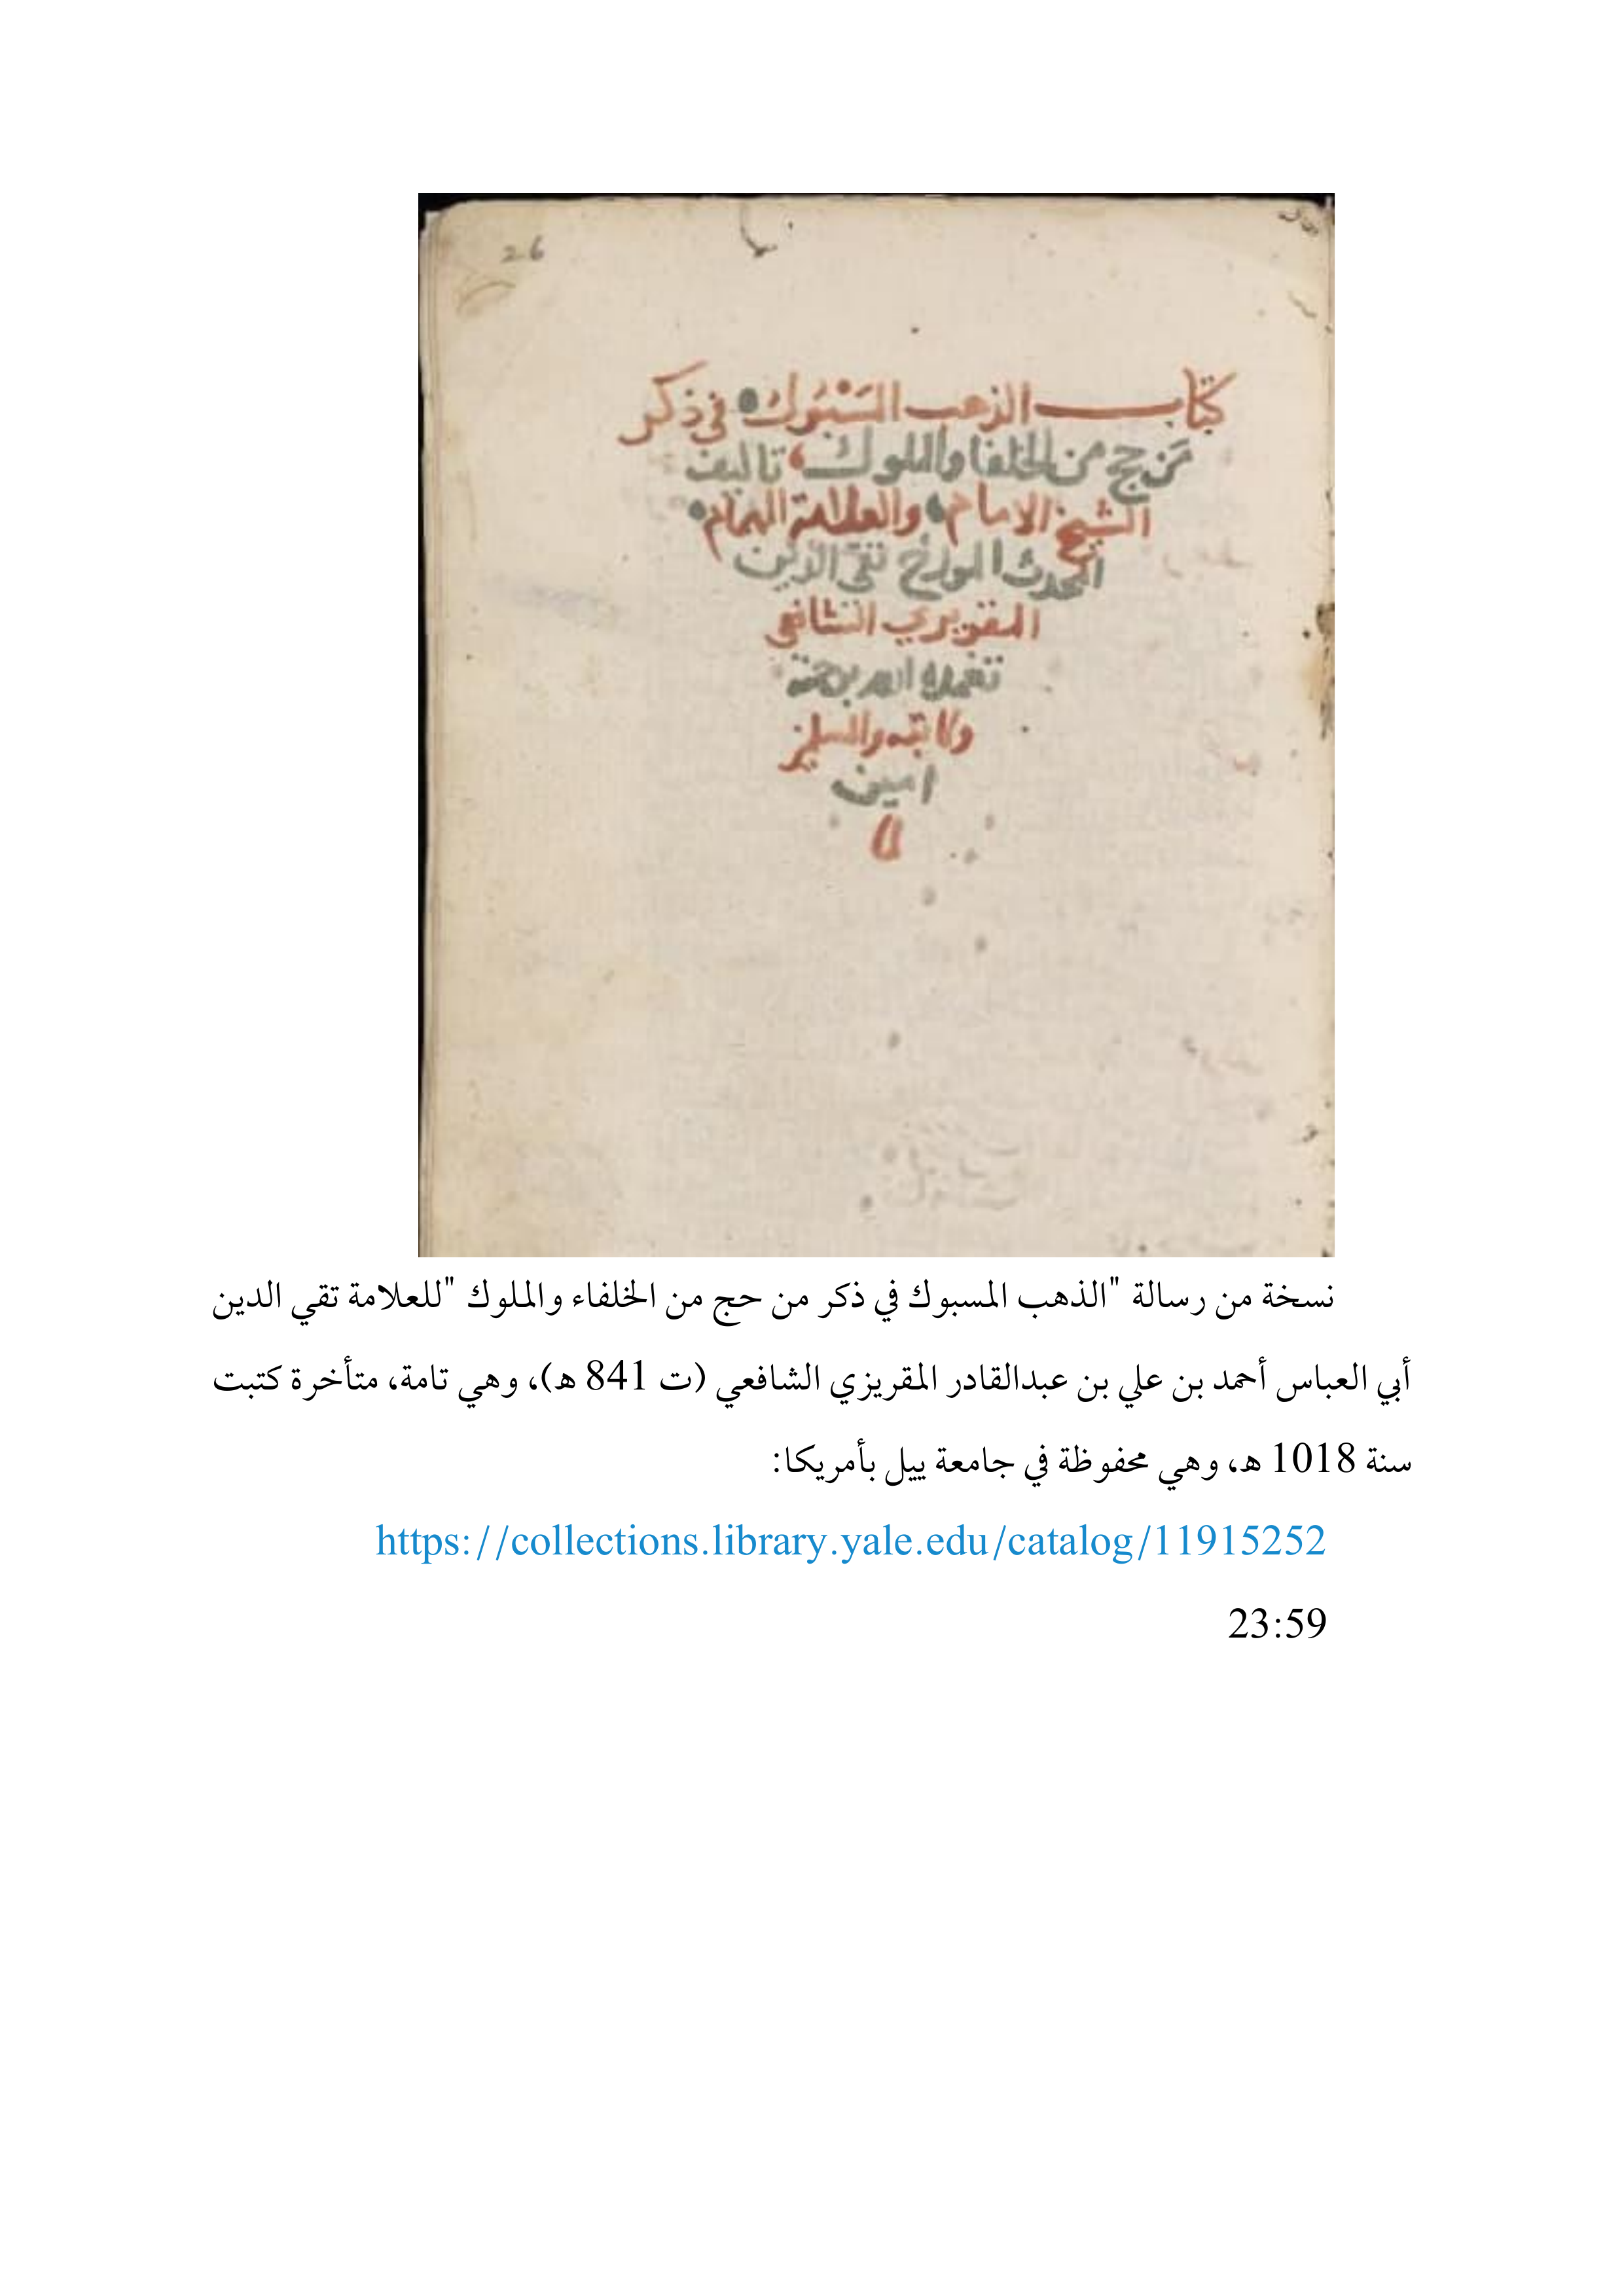 26
كتاب الذهب المسبوك في ذكر
من حج من الخلفا والملوك، تاليف
الشيخ الامام والعلامة الهمام
المحدث المورخ تقي الدين
المقريزي الشافعي
تغمده الله برحمته
وكاتبه والمسلمين
امين
نسخة من رسالة "الذهب المسبوك في ذكر من حج من الخلفاء والملوك "للعلامة تقي الدين
أبي العباس أحمد بن علي بن عبدالقادر المقريزي الشافعي (ت 841 ه)، وهي تامة، متأخرة كتبت
سنة 1018 ه، وهي محفوظة في جامعة ييل بأمريكا:
https://collections.library.yale.edu/catalog/11915252
23:59